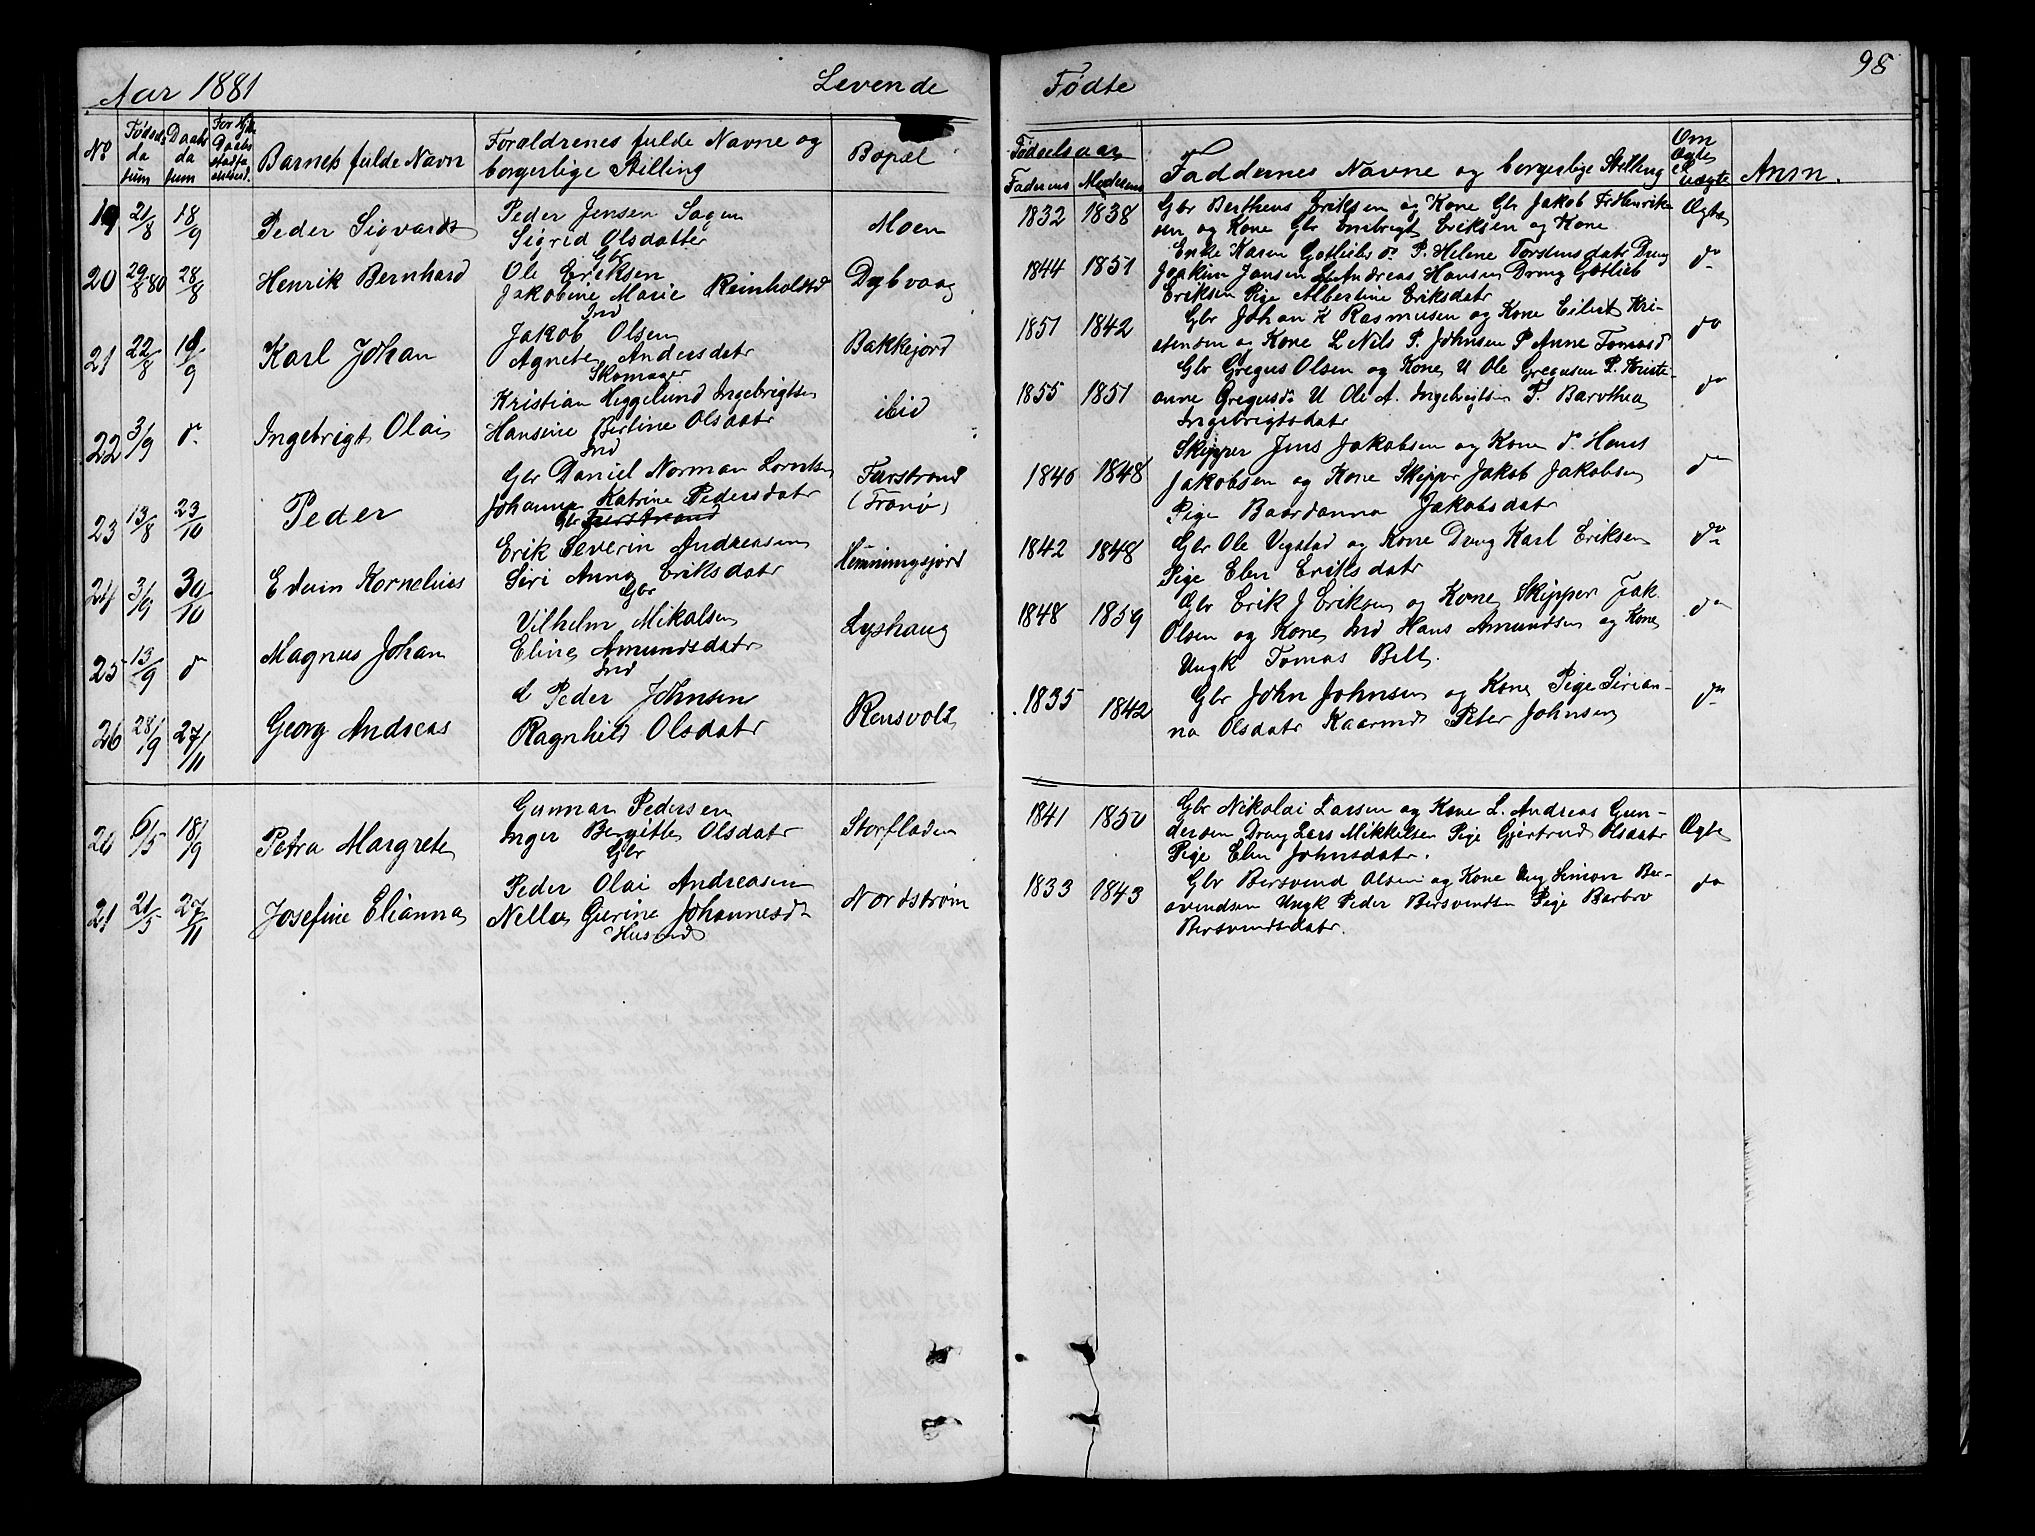 Aar 1881 Levende Fødte 98
No Fødsels datum Daabs datum Barnets fulde Navn Forældrenes fulde Navne og borgerlige Stilling Bopæl Fødselsaar Faderens Moderens Faddernes Navne og borgerlige Stilling Om Ægte el. uægte Anm.
19 21/8 18/9 Peder Sigvard Peder Jensen Sagen Moen 1832 1838 Gbr Bertheus Eriksen og Kone Gbr Jakob Fr Henrik
Sigrid Olsdatter sen og Kone Gbr Embrigt Eriksen og Kone Ægte
Gbr
20 29/8 80 28/8 Henrik Bernhard Ole Eriksen Dybvaag 1844 1851 Enke Karen Gotliebsd. P. Helene Torstensdatr Dreng do
Jakobine Marie Reinholdsd Joakim Jansen L Andreas Hansen Dreng Gotlieb
Ind Eriksen Pige Albertine Eriksdatr
21 22/8 19/9 Karl Johan Jakob Olsen Bakkejord 1851 1842 Gbr Johan K Rasmusen og Kone Eilert Kri-
Agnete Andersdatr stensen og Kone L Nils P. Johnsen P Anne Tomasd do
Skomager
22 3/9 do Ingebrigt Olai Kristian Heggelund Ingebrigtsen ibid 1855 1851 Gbr Gregus Olsen og Kone U Ole Gregusen P. Kristi-
Hansine Bertine Olsdatr anne Gregusd. U Ole A. Ingebrigtsen P. Barothea do
Ind Ingebrigtsdatr
23 13/8 23/10 Peder Gbr Daniel Norman Lorntsen Furstrand 1846 1848 Skipper Jens Jakobsen og Kone do Hans
Johanna Katrine Pedersdatr (Tranø) Jakobsen og Kone Skipper Jakob Jakobsen do
Gbr Furstrand Pige Baardanna Jakobsdatr
24 3/9 30/10 Edvin Kornelius Erik Severin Andreasen Hemmingsjord 1842 1848 Gbr Ole Vegstad og Kone Dreng Karl Eriksen do
Siri Anna Eriksdatr Pige Elen Eriksdatr
Gbr
25 13/9 do Magnus Johan Vilhelm Mikalsen Lyshaug 1848 1859 Gbr Erik J Eriksen og Kone Skipper Jak.
Eline Amundsdatr Olsen og Kone Ind Hans Amundsen og Kone do
Ind Ungk Tomas Bell.
26 28/9 27/11 Georg Andreas L Peder Johnsen Rensvold 1835 1842 Gbr John Johnsen og Kone Pige Sirian-
Ragnhild Olsdatr na Olsdatr Kaarmd Peter Johnsen do
20 6/5 18/9 Petra Margrete Gunnar Pedersen Storfladen 1841 1850 Gbr Nikolai Larsen og Kone L. Andreas Gun-
Inger Bergitte Olsdatr dersen Dreng Lars Mikkelsen Pige Gjertrud Olsdatr Ægte
Gbr Pige Elen Johnsdatr.
21 21/5 27/11 Josefine Elianna Peder Olai Andreasen Nordstrøm 1833 1843 Gbr Bersvend Olsen og Kone Ung Simon Ber-
Nella Gurine Johannesd svendsen Ungk Peder Bersvendsen Pige Barbro do
Husmd Bersvendsdatr.